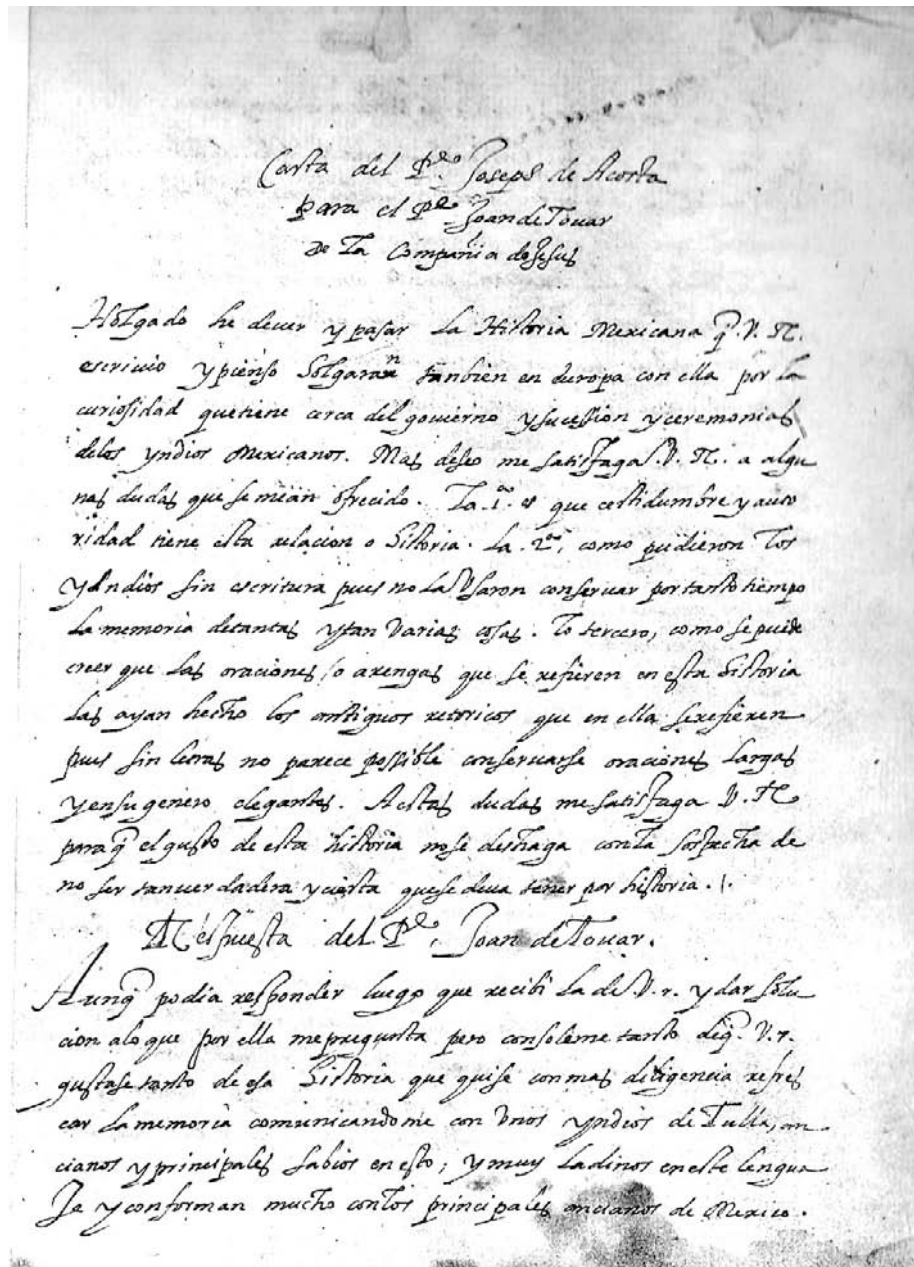 Carta del Pe. Joseph de Acosta
para el Pe. Joan de Touar
De la Compañia de Jesus
Holgado he de ver y pasar la Historia Mexicana q̃. V. R.
escriuio y pienso holgaran tanbien en europa con ella por la
curiosidad que tiene cerca del gouierno y sucession y ceremonias
delos yndios Mexicanos. Mas deseo me satisfaga. V. R. a algu
nas dudas que se mean ofrecido. La .1ª. es que certidumbre y auto
ridad tiene esta relacion o historia. La .2ª. como pudieron los
yndios sin escritura pues no la Vsaron conseruar por tanto tiempo
La memoria de tantas y tan varias cosas. Lo tercero, como se puede
creer que las oraciones, o arengas que se refieren en esta historia
Las ayan hecho los antiguos retoricos que en ella se refieren
pues sin letras no parece possible conseruarse oraciones largas
y en su genero elegantes. A estas dudas me satisfaga V. R.
paraq̃ el gusto de esta historia nose deshaga conla sospecha de
no ser tan uerdadera y cierta que se deua tener por historia.
Respuesta del Pe. Joan de Touar.
Aunq̃ podia responder luego que recibi la de V. r. y dar solu
cion alo que por ella me pregunta pero consoleme tanto deq̃. V. r.
gustase tanto de esa historia que quise con mas diligencia refres
car la memoria comunicandome con Vnos yndios de Tulla, an
cianos y principales sabios en esto, y muy ladinos en este lengua
Je y conforman mucho conlos principales ancianos de Mexico.